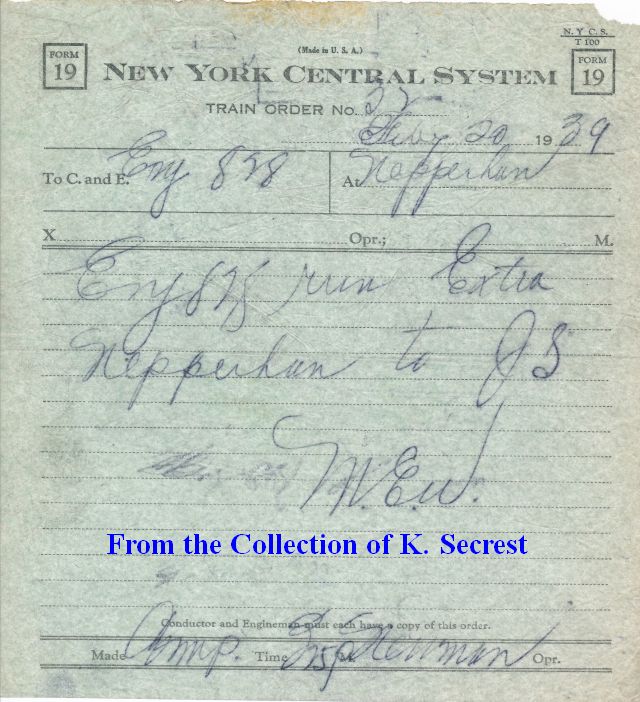 (Made in U. S. A.)
N. Y. C. S.
T 100
FORM
19
NEW YORK CENTRAL SYSTEM
FORM
19
TRAIN ORDER No. 32
Feby 20 1939
To C. and E. Eng 828
At Nepperhan
X Opr.; M.
Eng 828 run Extra
Nepperhan to JS
M.E.W.
From the Collection of K. Secrest
Conductor and Engineman must each have a copy of this order.
Made Comp. Time M. Newman Opr.